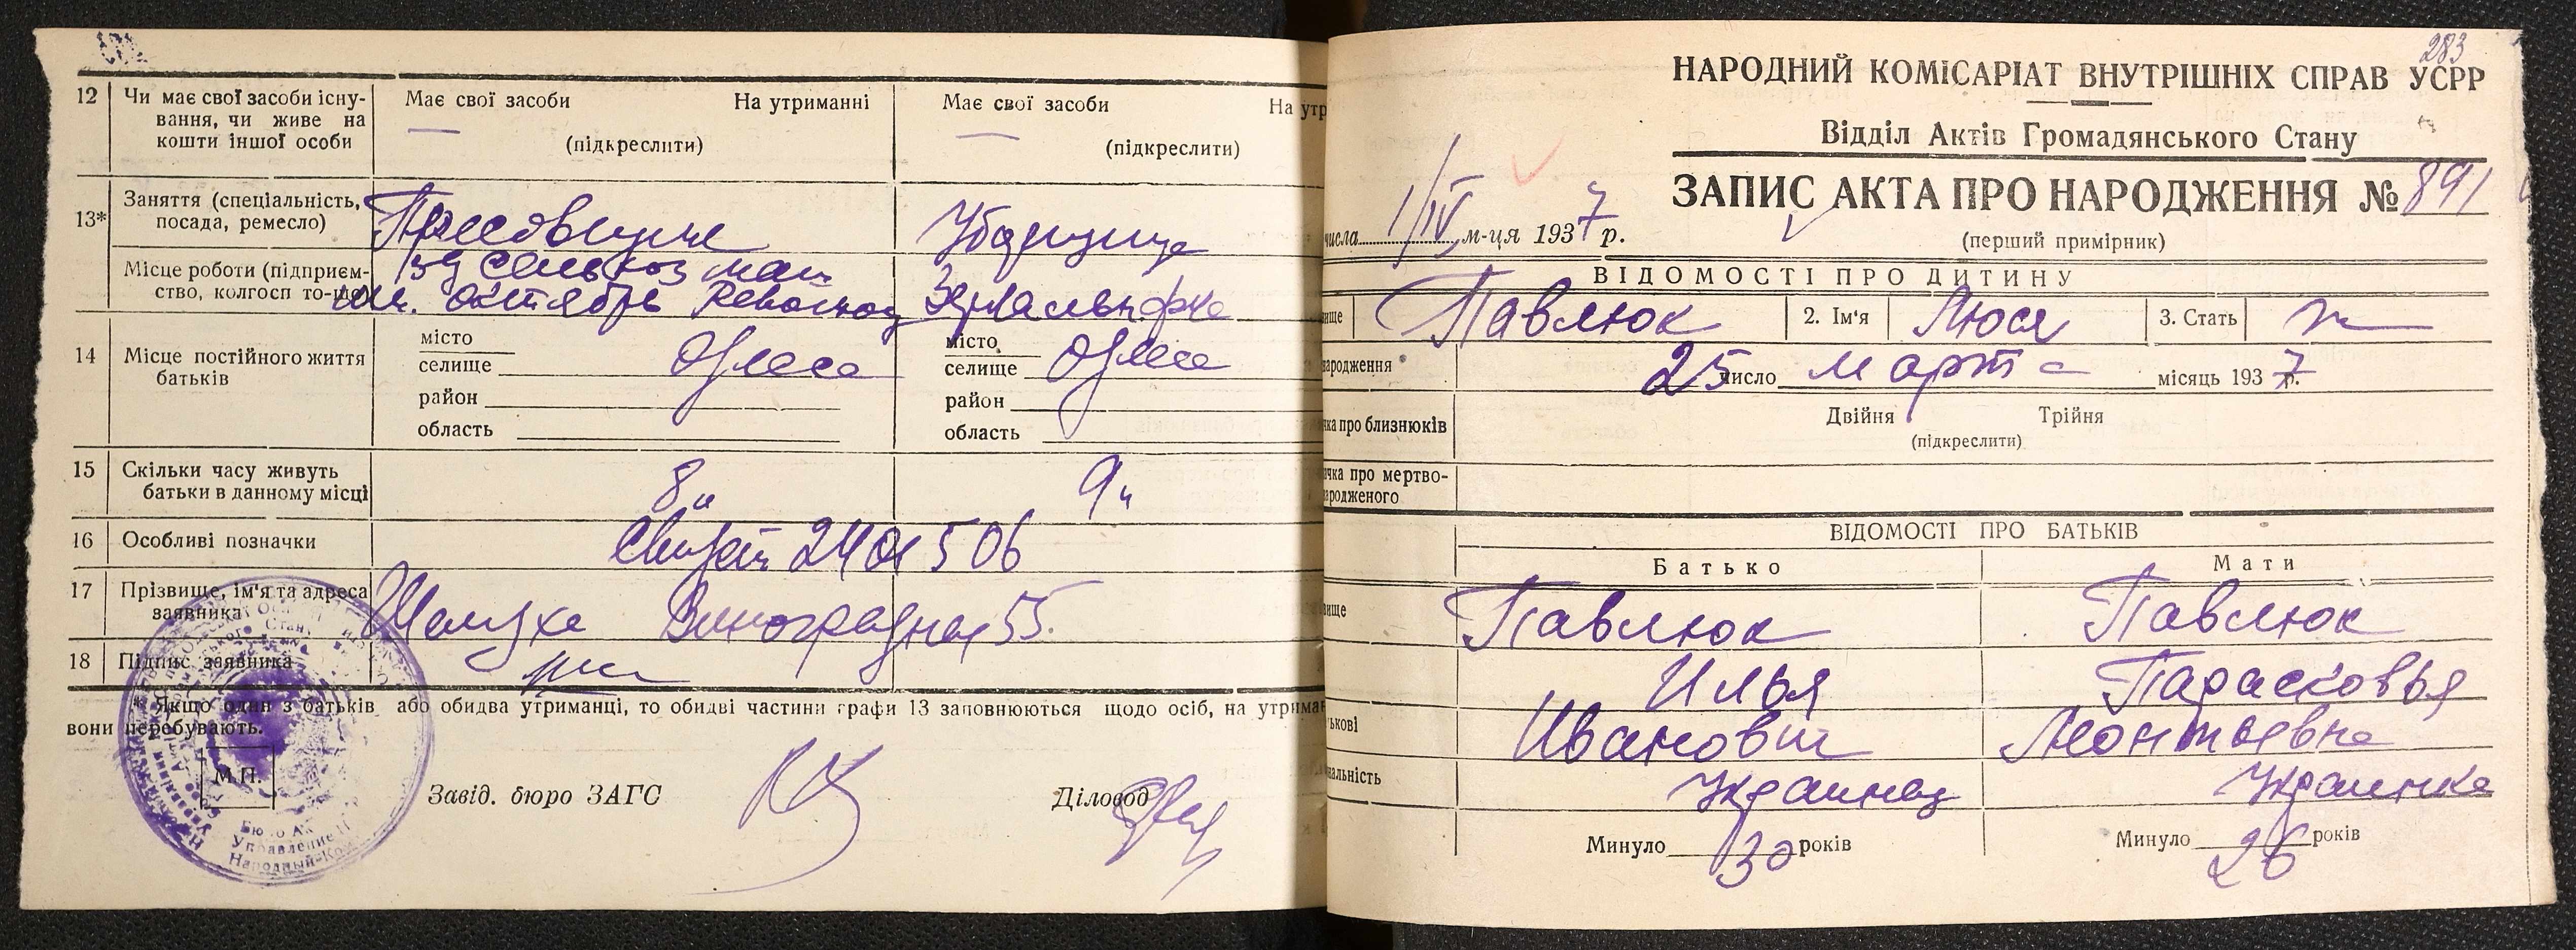 12
Чи має свої засоби існу-
вання, чи живе на
кошти іншої особи
Має свої засоби На утриманні
(підкреслити)
Має свої засоби На утр
(підкреслити)
13*
Заняття (спеціальність,
посада, ремесло)
Прессовщик
Уборщица
Місце роботи (підприєм-
ство, колгосп то-що)
зд Сельхоз маш
им. Октябрь Революц
Зеркальн. фка
14
Місце постійного життя
батьків
місто
селище Одесса
район
область
місто
селище Одесса
район
область
15
Скільки часу живуть
батьки в данному місці
8 л
9 л
16
Особливі позначки
2401506
17
Прізвище, ім'я та адреса
заявника
Виноградная 55.
18
Підпис заявника
* Якщо один з батьків або обидва утриманці, то обидві частини графи 13 заповнюються щодо осіб, на утриман
вони перебувають.
М.П.
Завід. бюро ЗАГС
Діловод
283
НАРОДНИЙ КОМІСАРІАТ ВНУТРІШНІХ СПРАВ УСРР
Відділ Актів Громадянського Стану
ЗАПИС АКТА ПРО НАРОДЖЕННЯ № 891
(перший примірник)
числа 1/IV м-ця 1937 р.
ВІДОМОСТІ ПРО ДИТИНУ
ище Павлюк 2. Ім'я Люся 3. Стать ж
народження 25 число марта місяць 1937 р.
чка про близнюків
Двійня Трійня
(підкреслити)
ачка про мертво-
ародженого
ВІДОМОСТІ ПРО БАТЬКІВ
Батько Мати
вище Павлюк Павлюк
Илья Парасковья
ькові Иванович Леонтьевна
нальність Украинец Украинка
Минуло 30 років Минуло 26 років